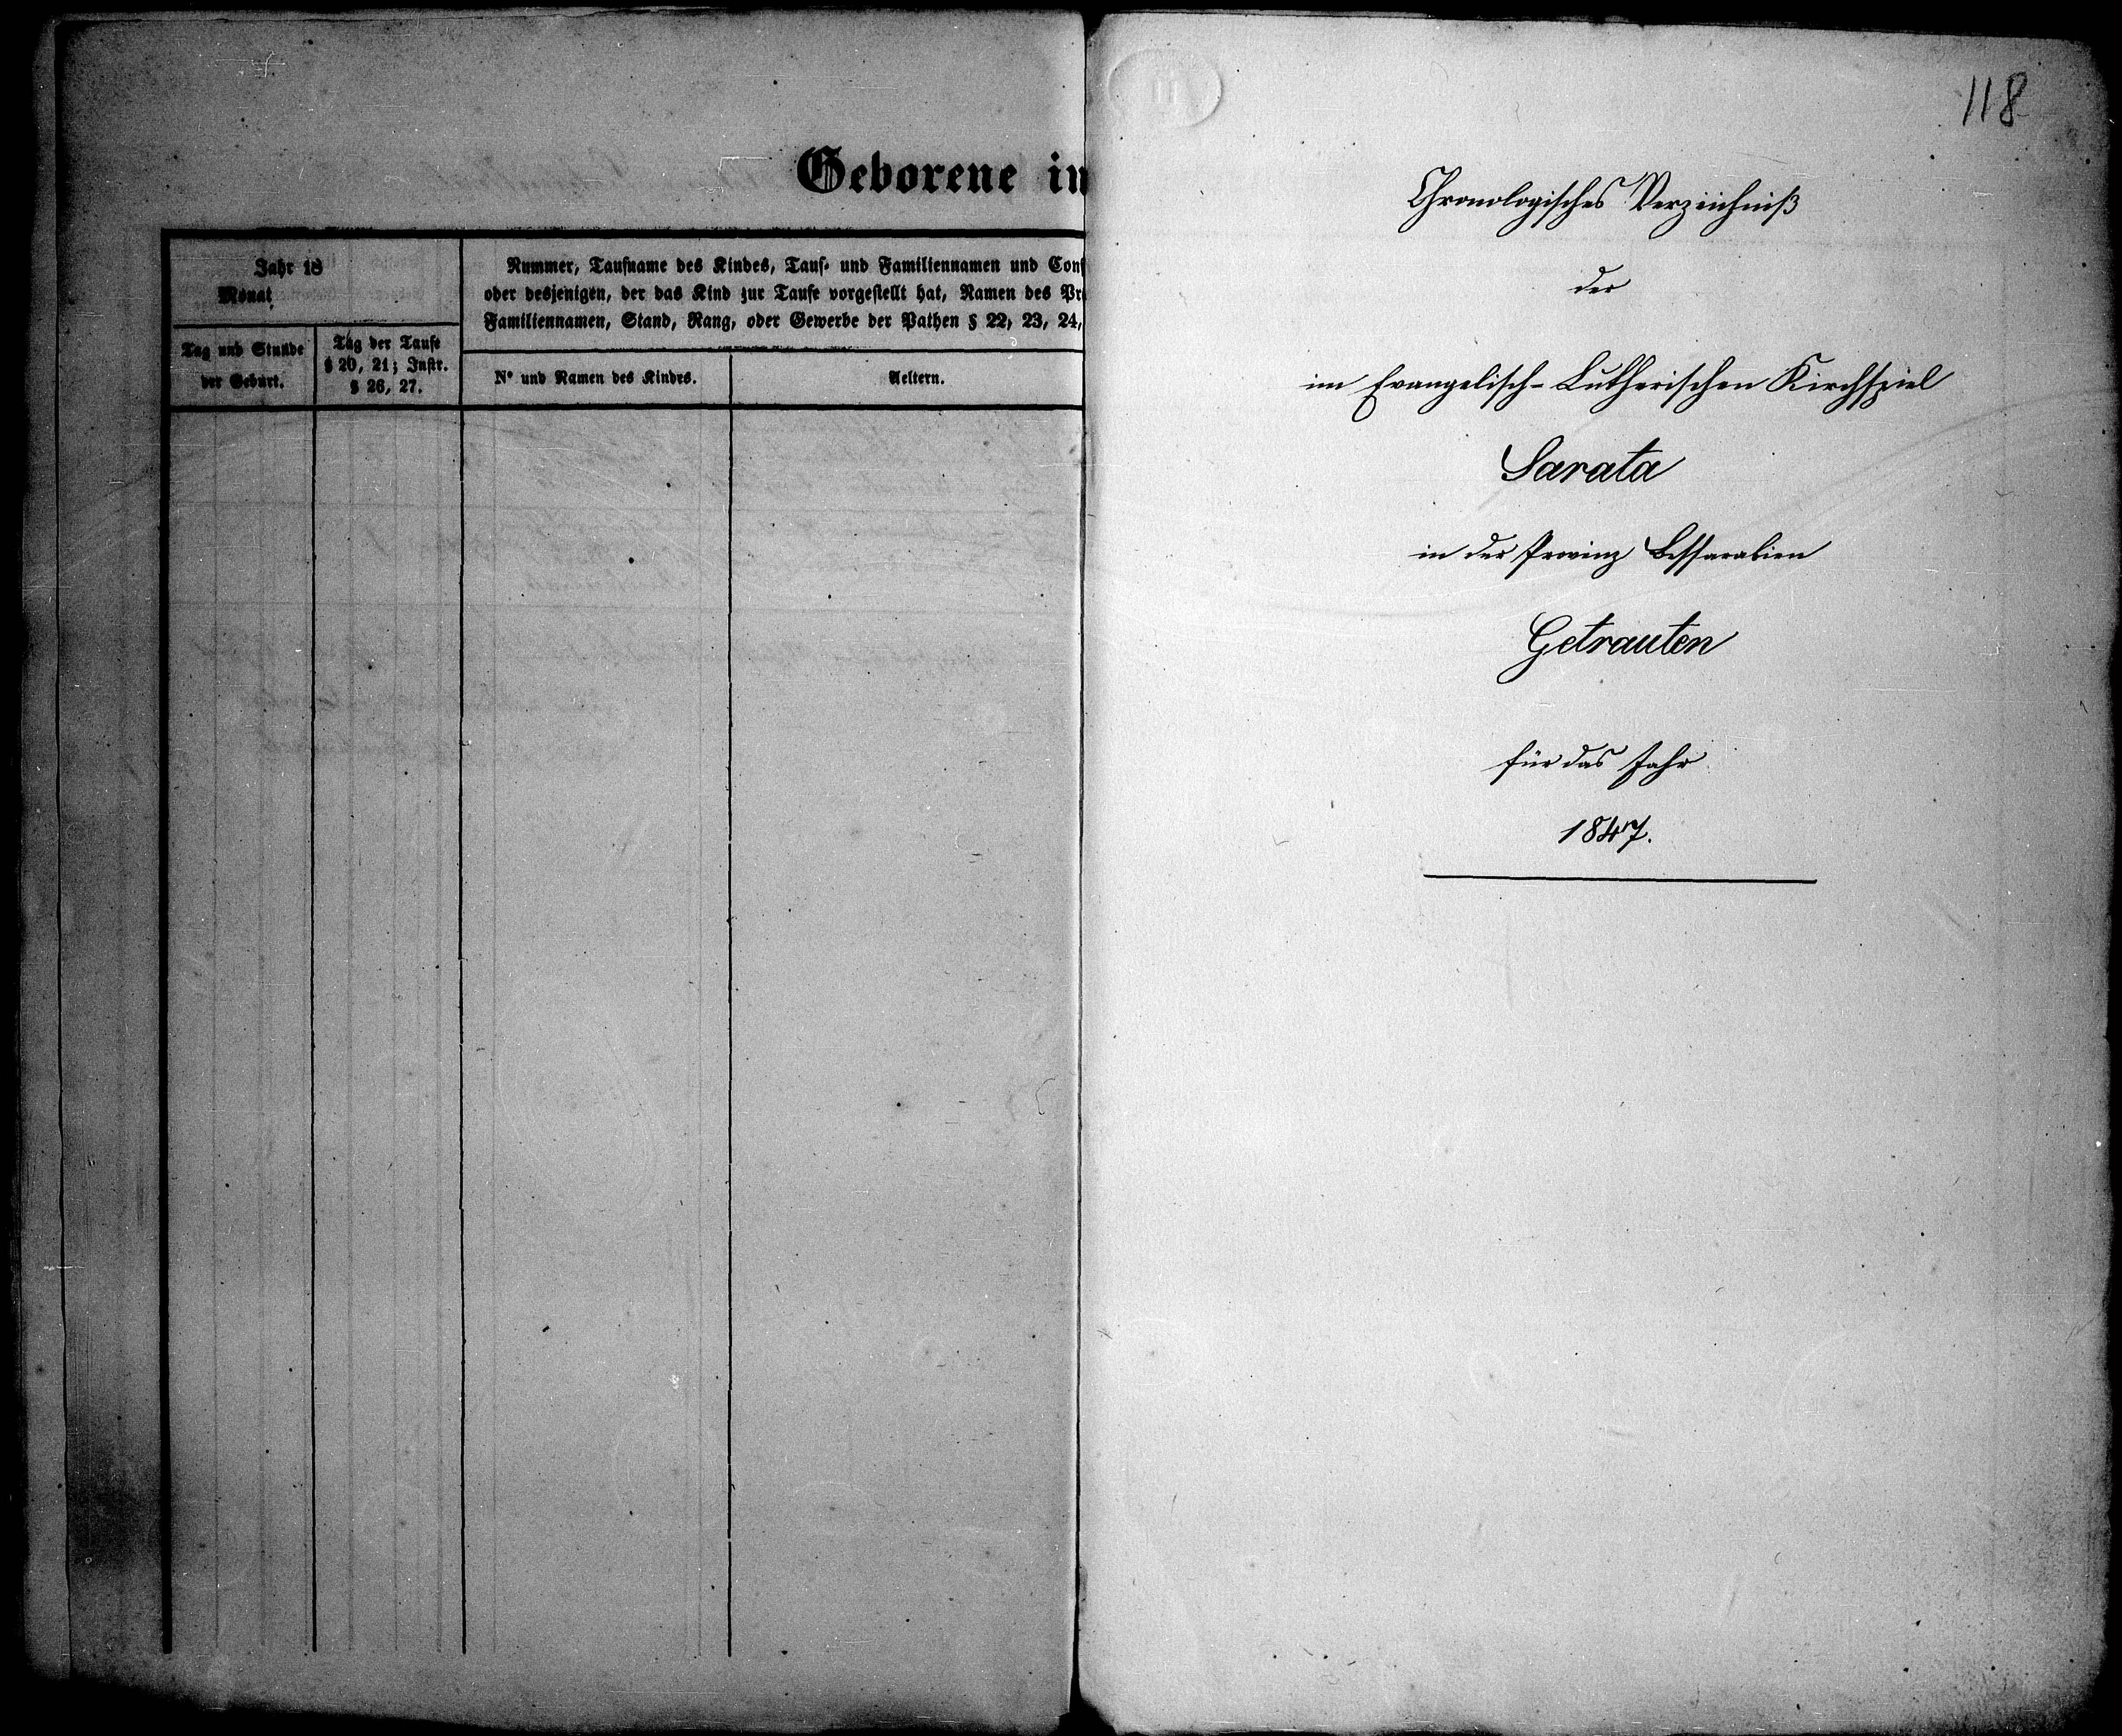 Geborene in
Jahr 18
Monat
Tag und Stunde
der Geburt.
Tag der Taufe
§ 20, 21; Instr.
§ 26, 27.
Nummer, Taufname des Kindes, Tauf- und Familiennamen und Conf
oder desjenigen, der das Kind zur Taufe vorgestellt hat, Namen des Pr
Familiennamen, Stand, Rang, oder Gewerbe der Pathen § 22, 23, 24,
N° und Namen des Kindes.
Aeltern.
118
Chronologisches Verzeichniß
der
im Evangelisch-Lutherischen Kirchspiel
Sarata
in der Provinz Bessarabien
Getrauten
für das Jahr
1847.